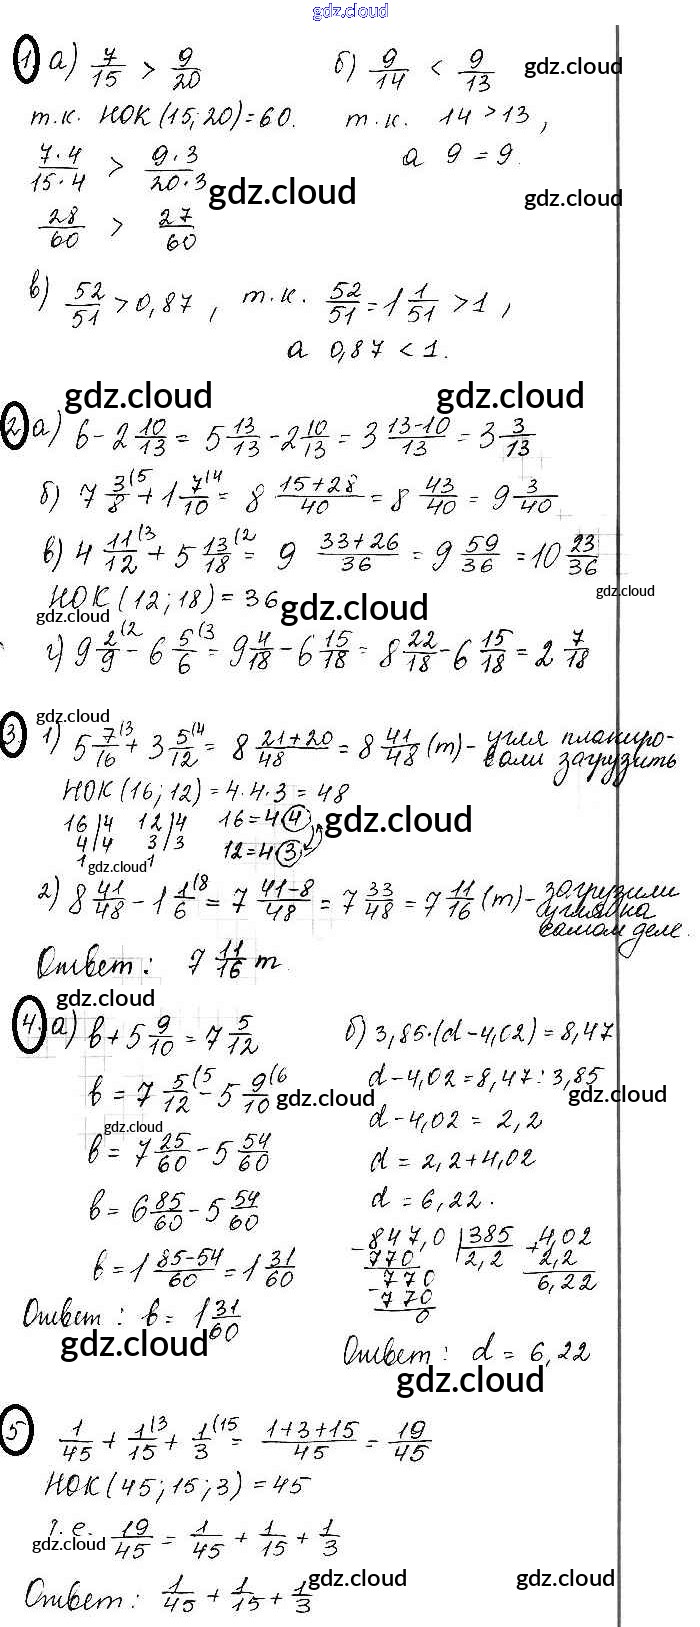 gdz.cloud
1. а) 7/15 > 9/20 б) 9/14 < 9/13 gdz.cloud
т.к. НОК (15; 20) = 60. т.к. 14 > 13,
7·4/15·4 > 9·3/20·3 а 9 = 9.
gdz.cloud gdz.cloud
28/60 > 27/60
в) 52/51 > 0,87, т.к. 52/51 = 1 1/51 > 1,
а 0,87 < 1.
gdz.cloud gdz.cloud
2. а) 6 - 2 10/13 = 5 13/13 - 2 10/13 = 3 13-10/13 = 3 3/13
б) 7 3/8 (5 + 1 7/10 (4 = 8 15+28/40 = 8 43/40 = 9 3/40
в) 4 11/12 (3 + 5 13/18 (2 = 9 33+26/36 = 9 59/36 = 10 23/36
НОК (12; 18) = 36 gdz.cloud gdz.cloud
gdz.cloud
г) 9 2/9 (2 - 6 5/6 (3 = 9 4/18 - 6 15/18 = 8 22/18 - 6 15/18 = 2 7/18
gdz.cloud
3. 1) 5 7/16 (3 + 3 5/12 (4 = 8 21+20/48 = 8 41/48 (т) - угля планиро-
вали загрузить
НОК (16; 12) = 4·4·3 = 48
16|4 12|4 16=4·4 gdz.cloud
4|4 3|3 12=4·3
1 gdz.cloud 1
2) 8 41/48 - 1 1/6 (8 = 7 41-8/48 = 7 33/48 = 7 11/16 (т) - загрузили
угля на
самом деле.
Ответ: 7 11/16 т.
gdz.cloud
4. а) b + 5 9/10 = 7 5/12 б) 3,85·(d - 4,02) = 8,47
b = 7 5/12 (5 - 5 9/10 (6 d - 4,02 = 8,47 : 3,85
gdz.cloud gdz.cloud
gdz.cloud d - 4,02 = 2,2
b = 7 25/60 - 5 54/60 d = 2,2 + 4,02
b = 6 85/60 - 5 54/60 d = 6,22.
b = 1 85-54/60 = 1 31/60 - 847,0 |385 + 4,02
770 2,2 2,2
- 770 6,22
770
0
Ответ: b = 1 31/60
gdz.cloud Ответ: d = 6,22
gdz.cloud
5 1/45 + 1/15 (3 + 1/3 (15 = 1+3+15/45 = 19/45
НОК (45; 15; 3) = 45
т.е. 19/45 = 1/45 + 1/15 + 1/3
gdz.cloud
Ответ: 1/45 + 1/15 + 1/3 gdz.cloud gdz.cloud